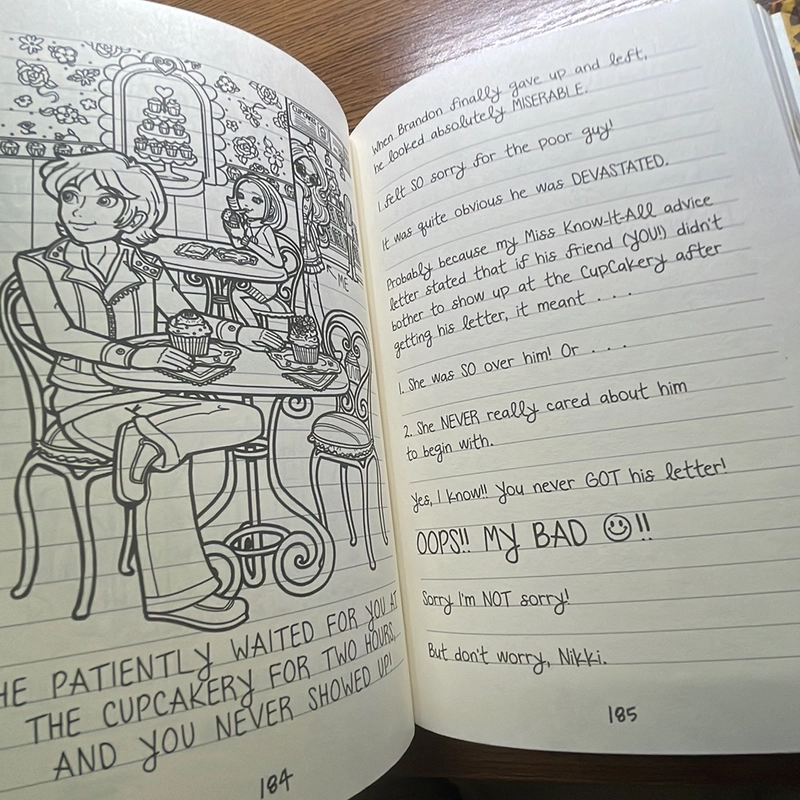 ME
HE PATIENTLY WAITED FOR YOU AT
THE CUPCAKERY FOR TWO HOURS,
AND YOU NEVER SHOWED UP!
184
When Brandon finally gave up and left,
he looked absolutely MISERABLE.
I felt SO sorry for the poor guy!
It was quite obvious he was DEVASTATED.
Probably because my Miss Know-It-All advice
letter stated that if his friend (YOU!) didn't
bother to show up at the CupCakery after
getting his letter, it meant . . .
1. She was SO over him! Or . . .
2. She NEVER really cared about him
to begin with.
Yes, I know!! You never GOT his letter!
OOPS!! MY BAD ☺!!
Sorry I'm NOT sorry!
But don't worry, Nikki.
185